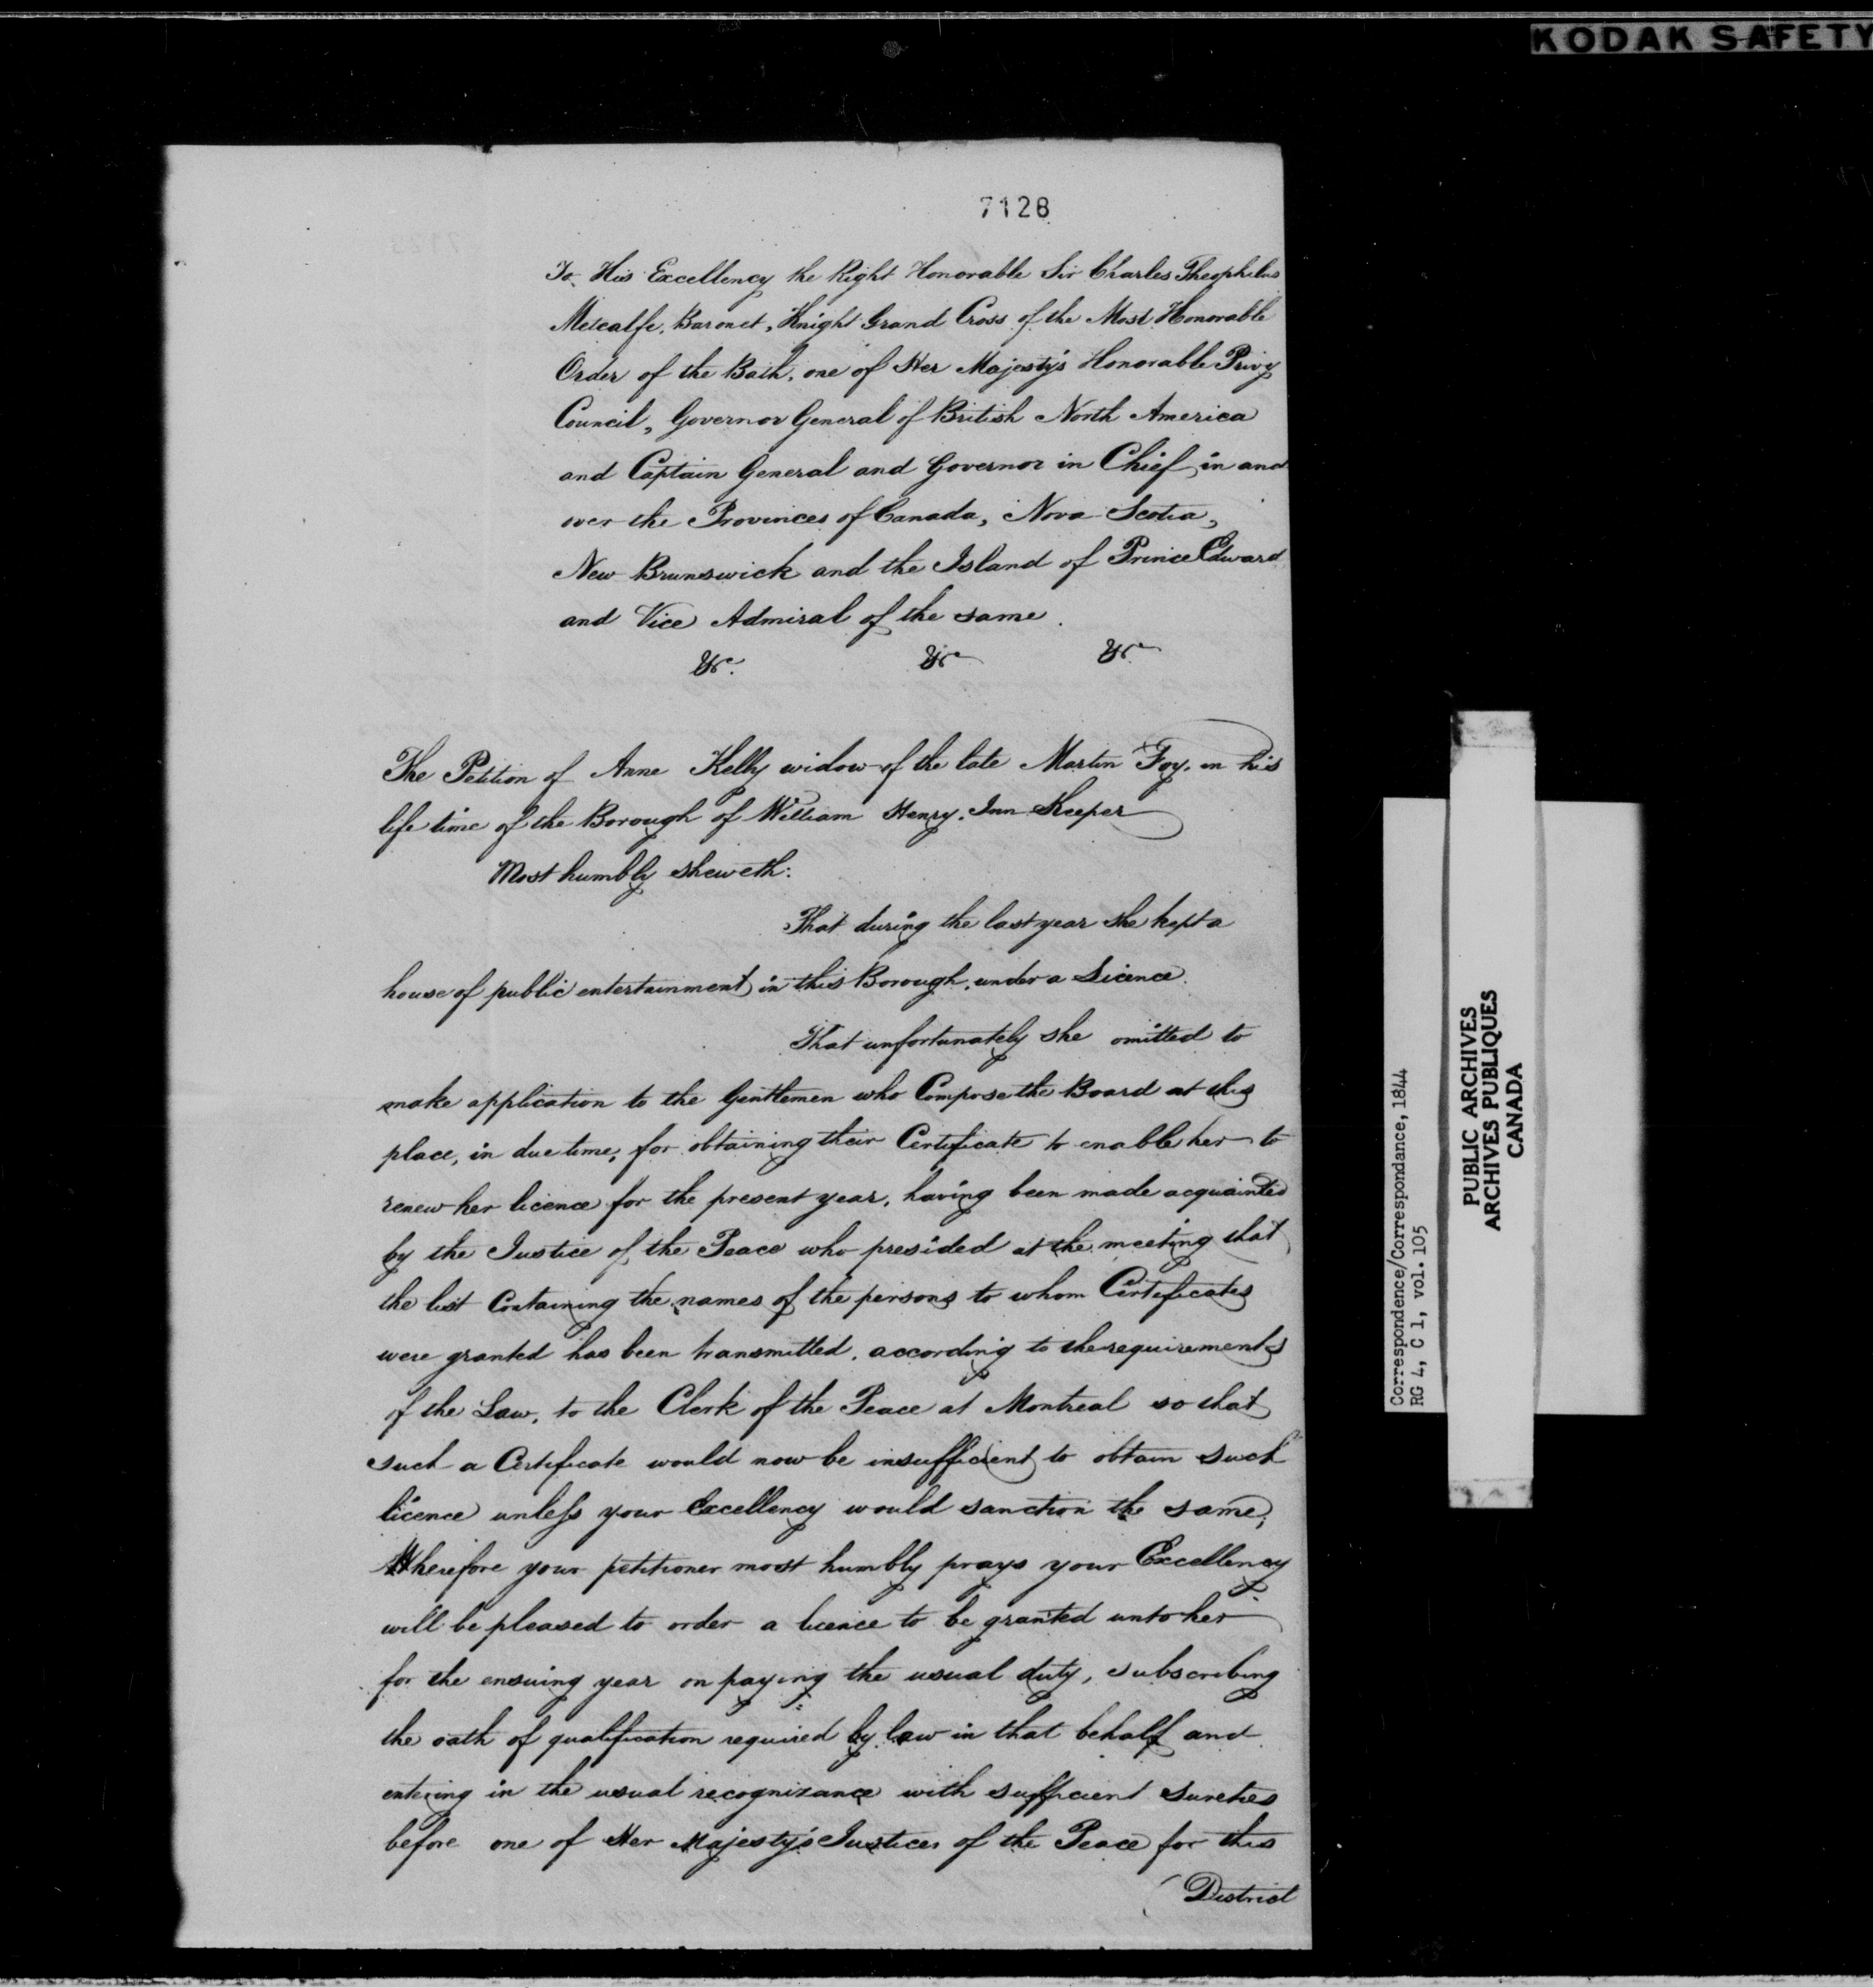 KODAK SAFETY
7128
To His Excellency the Right Honorable Sir Charles Theophilus
Metcalfe, Baronet, Knight Grand Cross of the Most Honorable
Order of the Bath, one of Her Majesty's Honorable Privy
Council, Governor General of British North America
and Captain General and Governor in Chief, in and
over the Provinces of Canada, Nova Scotia,
New Brunswick and the Island of Prince Edward
and Vice Admiral of the same.
&c. &c &c
The Petition of Anne Kelly widow of the late Martin Foy, in his
life time of the Borough of William Henry, Inn Keeper
Most humbly sheweth:
That during the last year she kept a
house of public entertainment in this Borough, under a Licence.
That unfortunately she omitted to
make application to the Gentlemen who Compose the Board at this
place, in due time, for obtaining their Certificate to enable her to
renew her licence for the present year, having been made acquainted
by the Justice of the Peace who presided at the meeting that
the list Containing the names of the persons to whom Certificates
were granted has been transmitted, according to the requirements
of the Law, to the Clerk of the Peace at Montreal so that
such a Certificate would now be insufficient to obtain such
licence unless your Excellency would sanction the same;
Wherefore your petitioner most humbly prays your Excellency
will be pleased to order a licence to be granted unto her
for the ensuing year on paying the usual duty, subscribing
the oath of qualification required by law in that behalf and
entering in the usual recognizance with sufficient sureties
before one of Her Majesty's Justices of the Peace for this
District
Correspondence/Correspondance, 1844
RG 4, C 1, vol. 105
PUBLIC ARCHIVES
ARCHIVES PUBLIQUES
CANADA